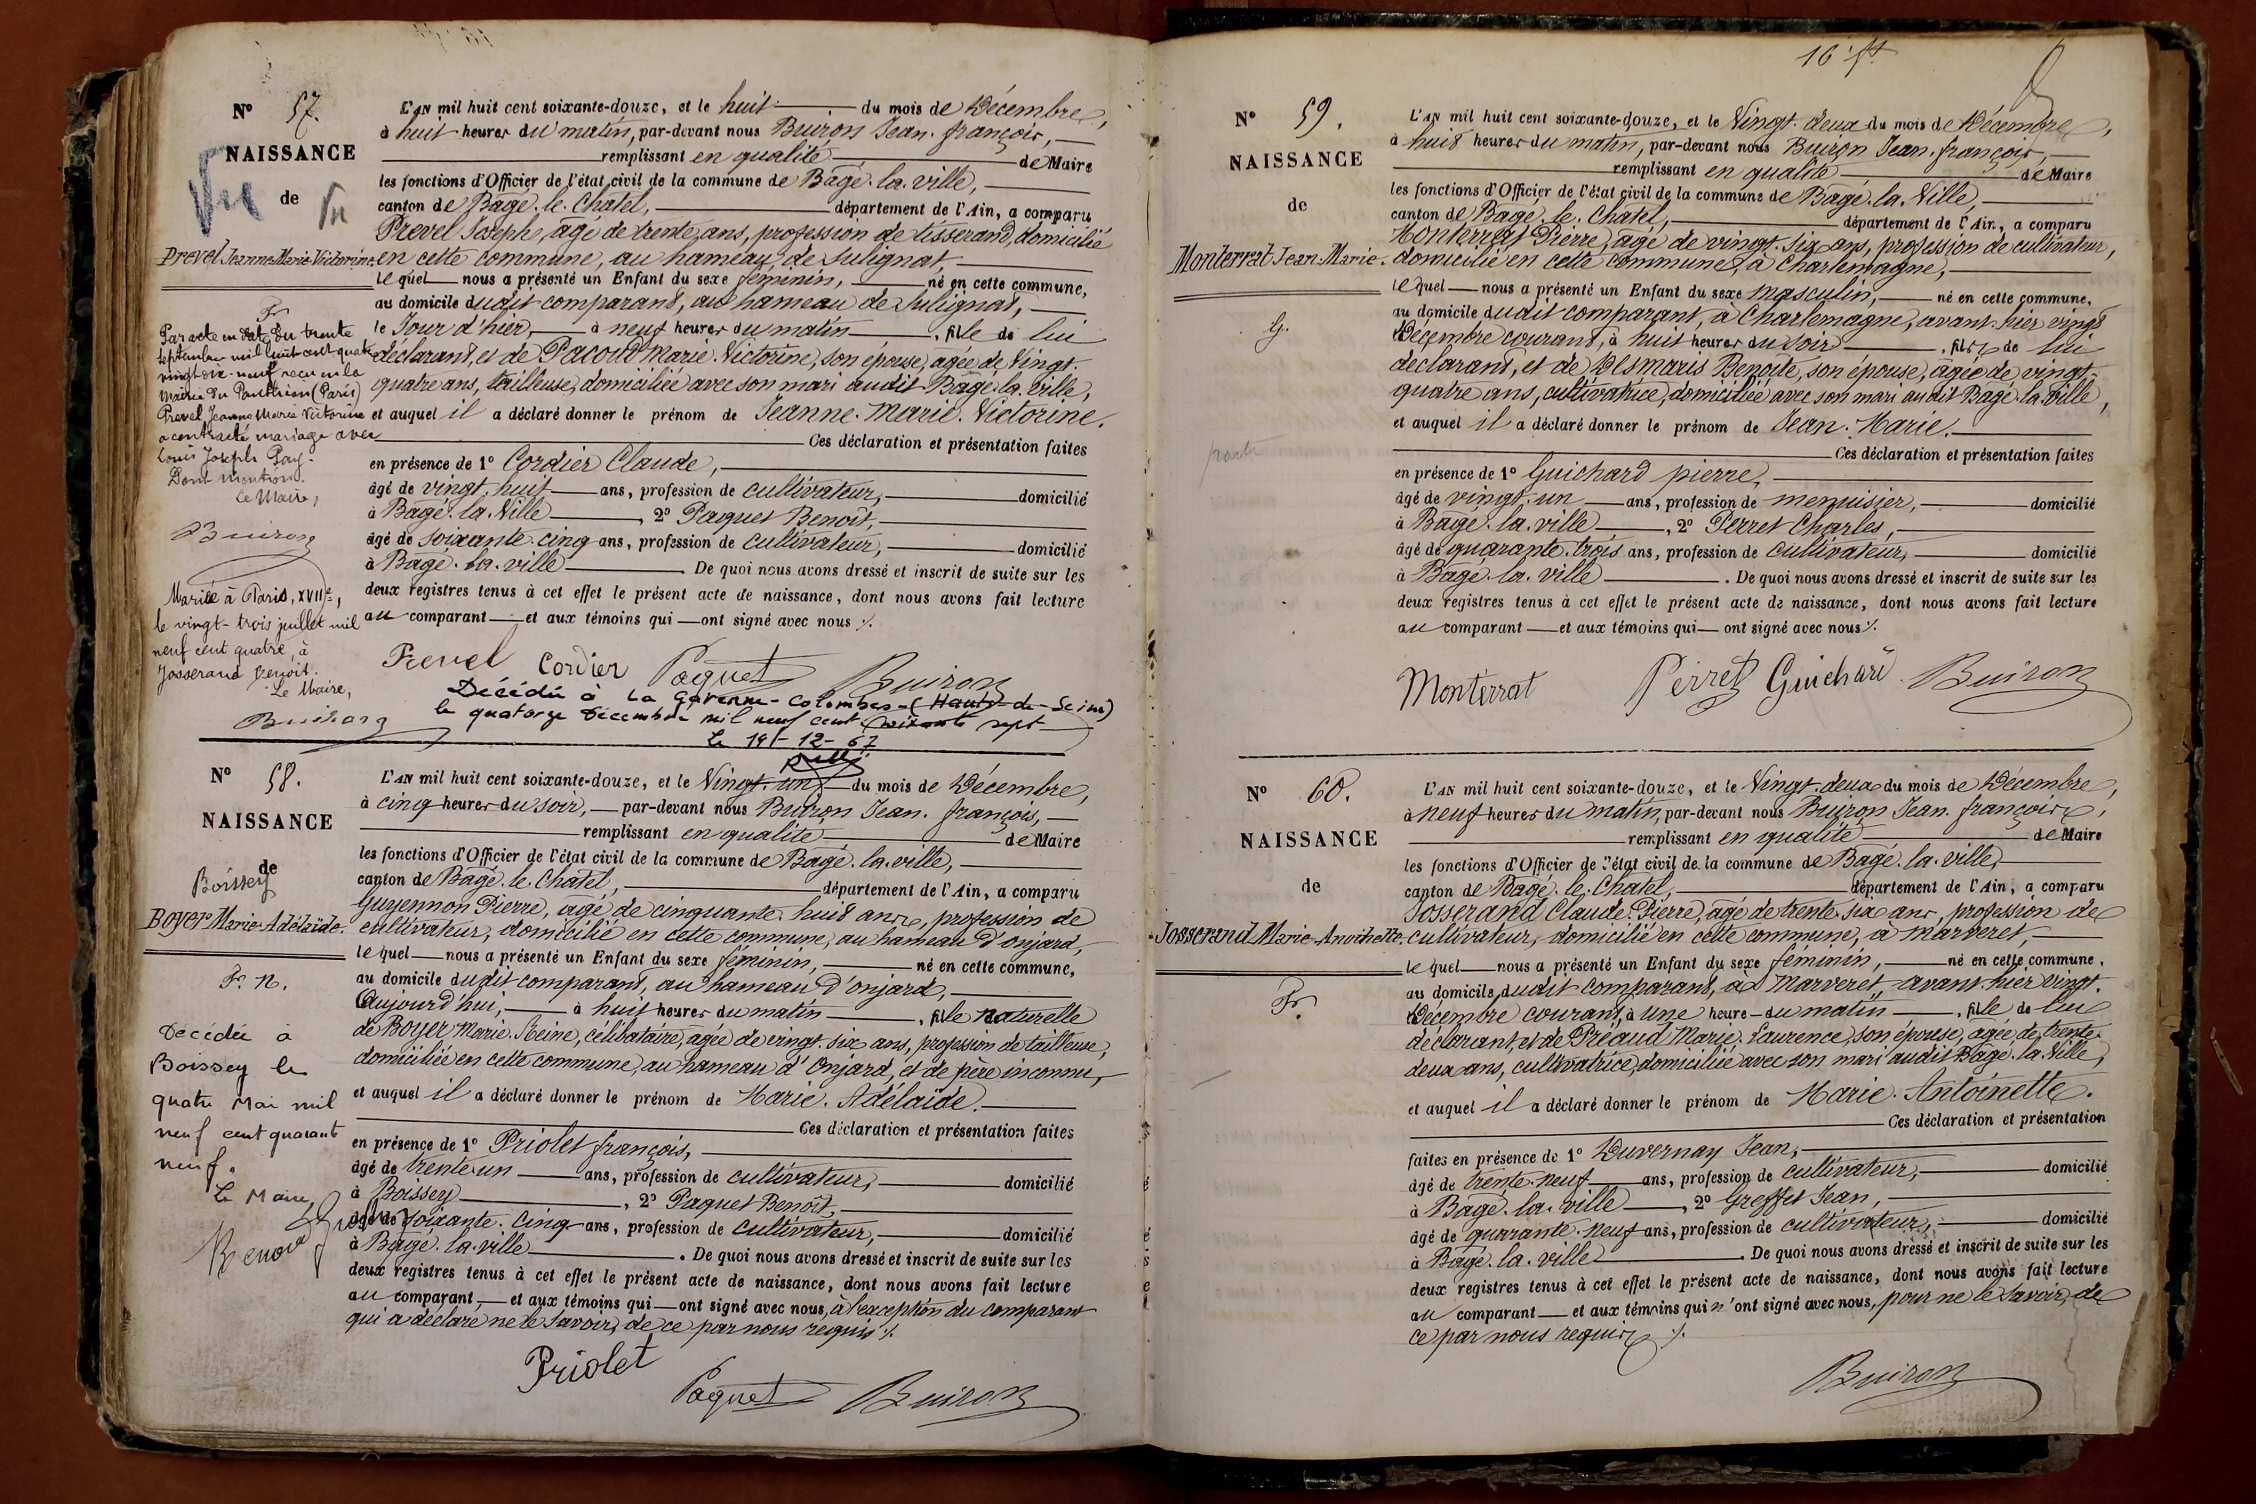 N° 57.
NAISSANCE
de
Vu
Vu
Prevel Jeanne-Marie-Victorine.
Fr
Par acte en date du trente
septembre mil huit cent quatre
vingt dix-neuf reçu en la
Mairie du Panthéon (Paris)
Prevel Jeanne Marie Victorine
a contracté mariage avec
Louis Joseph
Dont mention.
Le Maire,
Buiron
Mariée à Paris, XVIIe,
le vingt-trois juillet mil
neuf cent quatre, à
Josserand Benoit.
Le Maire,
Buiron
L'AN mil huit cent soixante-douze, et le huit du mois de Décembre,
à huit heures du matin, par-devant nous Buiron Jean-françois,
remplissant en qualité de Maire
les fonctions d'Officier de l'état civil de la commune de Bâgé-la-ville,
canton de Bâgé-le-Châtel, département de l'Ain, a comparu
Prevel Joseph, âgé de trente ans, profession de tisserand, domicilié
en cette commune, au hameau de Sulignat,
lequel nous a présenté un Enfant du sexe féminin, né en cette commune,
au domicile dudit comparant, au hameau de Sulignat,
le Jour d'hier, à neuf heures du matin, fille de lui
déclarant, et de Pacoud Marie-Victorine, son épouse, âgée de Vingt-
quatre ans, tailleuse, domiciliée avec son mari audit Bâgé-la-Ville,
et auquel il a déclaré donner le prénom de Jeanne-Marie-Victorine.
Ces déclaration et présentation faites
en présence de 1° Cordier Claude,
âgé de vingt-huit ans, profession de cultivateur, domicilié
à Bâgé-la-Ville, 2° Paquet Benoît,
âgé de soixante-cinq ans, profession de cultivateur, domicilié
à Bâgé-la-ville. De quoi nous avons dressé et inscrit de suite sur les
deux registres tenus à cet effet le présent acte de naissance, dont nous avons fait lecture
au comparant et aux témoins qui ont signé avec nous ./.
Prevel Cordier Paquet Buiron
Décédée à La Garenne-Colombes (Hauts-de-Seine)
le quatorze décembre mil neuf cent soixante sept
Le 19-12-67
N° 58.
NAISSANCE
de
Boissey
Boyer Marie-Adélaïde.
F. N.
Décédée à
Boissey le
quatre Mai mil
neuf cent quarante
neuf.
Le Maire,
L'AN mil huit cent soixante-douze, et le Vingt-un du mois de Décembre,
à cinq heures du soir, par-devant nous Buiron Jean-françois,
remplissant en qualité de Maire
les fonctions d'Officier de l'état civil de la commune de Bâgé-la-ville,
canton de Bâgé-le-Châtel, département de l'Ain, a comparu
Guyennon Pierre, âgé de cinquante-huit ans, profession de
cultivateur, domicilié en cette commune, au hameau d'onjard,
lequel nous a présenté un Enfant du sexe féminin, né en cette commune,
au domicile dudit comparant, au hameau d'onjard,
Aujourd'hui, à huit heures du matin, fille naturelle
de Boyer Marie-Reine, célibataire, âgée de vingt-six ans, profession de tailleuse,
domiciliée en cette commune, au hameau d'Onjard, et de père inconnu,
et auquel il a déclaré donner le prénom de Marie-Adélaïde.
Ces déclaration et présentation faites
en présence de 1° Priolet françois,
âgé de trente-un ans, profession de cultivateur, domicilié
à Boissey, 2° Paquet Benoît,
âgé de soixante-cinq ans, profession de cultivateur, domicilié
à Bâgé-la-ville. De quoi nous avons dressé et inscrit de suite sur les
deux registres tenus à cet effet le présent acte de naissance, dont nous avons fait lecture
au comparant, et aux témoins qui ont signé avec nous, à l'exception du comparant
qui a déclaré ne le savoir, de ce par nous requis ./.
Priolet
Paquet Buiron
N° 59.
NAISSANCE
de
Monterrat Jean-Marie.
G.
L'AN mil huit cent soixante-douze, et le Vingt-deux du mois de Décembre,
à huit heures du matin, par-devant nous Buiron Jean-françois,
remplissant en qualité de Maire
les fonctions d'Officier de l'état civil de la commune de Bâgé-la-Ville,
canton de Bâgé-le-Châtel, département de l'Ain, a comparu
Monterrat Pierre, âgé de vingt-six ans, profession de cultivateur,
domicilié en cette commune, à Charlemagne,
lequel nous a présenté un Enfant du sexe masculin, né en cette commune,
au domicile dudit comparant, à Charlemagne, avant-hier vingt
Décembre courant, à huit heures du soir, fils de lui
déclarant, et de Desmaris Benoîte, son épouse, âgée de vingt-
quatre ans, cultivatrice, domiciliée avec son mari audit Bâgé-la-ville,
et auquel il a déclaré donner le prénom de Jean-Marie.
Ces déclaration et présentation faites
en présence de 1° Guichard pierre,
âgé de vingt-un ans, profession de menuisier, domicilié
à Bâgé-la-ville, 2° Perret Charles,
âgé de quarante-trois ans, profession de cultivateur, domicilié
à Bâgé-la-ville. De quoi nous avons dressé et inscrit de suite sur les
deux registres tenus à cet effet le présent acte de naissance, dont nous avons fait lecture
au comparant et aux témoins qui ont signé avec nous ./.
Monterrat Perret Guichard Buiron
N° 60.
NAISSANCE
de
Josserand Marie-Antoinette.
Fr.
L'AN mil huit cent soixante-douze, et le Vingt-deux du mois de Décembre,
à neuf heures du matin, par-devant nous Buiron Jean-françois,
remplissant en qualité de Maire
les fonctions d'Officier de l'état civil de la commune de Bâgé-la-ville,
canton de Bâgé-le-Châtel, département de l'Ain, a comparu
Josserand Claude-Pierre, âgé de trente-six ans, profession de
cultivateur, domicilié en cette commune, à Marveret,
lequel nous a présenté un Enfant du sexe féminin, né en cette commune,
au domicile dudit comparant, à Marveret, avant-hier vingt-
Décembre courant, à une heure du matin, fille de lui
déclarant, et de Préaud Marie-Laurence, son épouse, âgée de trente-
deux ans, cultivatrice, domiciliée avec son mari audit Bâgé-la-Ville,
et auquel il a déclaré donner le prénom de Marie-Antoinette.
Ces déclaration et présentation
faites en présence de 1° Duvernay Jean,
âgé de trente-neuf ans, profession de cultivateur, domicilié
à Bâgé-la-ville, 2° Greffet Jean,
âgé de quarante-neuf ans, profession de cultivateur, domicilié
à Bâgé-la-ville. De quoi nous avons dressé et inscrit de suite sur les
deux registres tenus à cet effet le présent acte de naissance, dont nous avons fait lecture
au comparant et aux témoins qui n'ont signé avec nous, pour ne le savoir, de
ce par nous requis ./.
Buiron